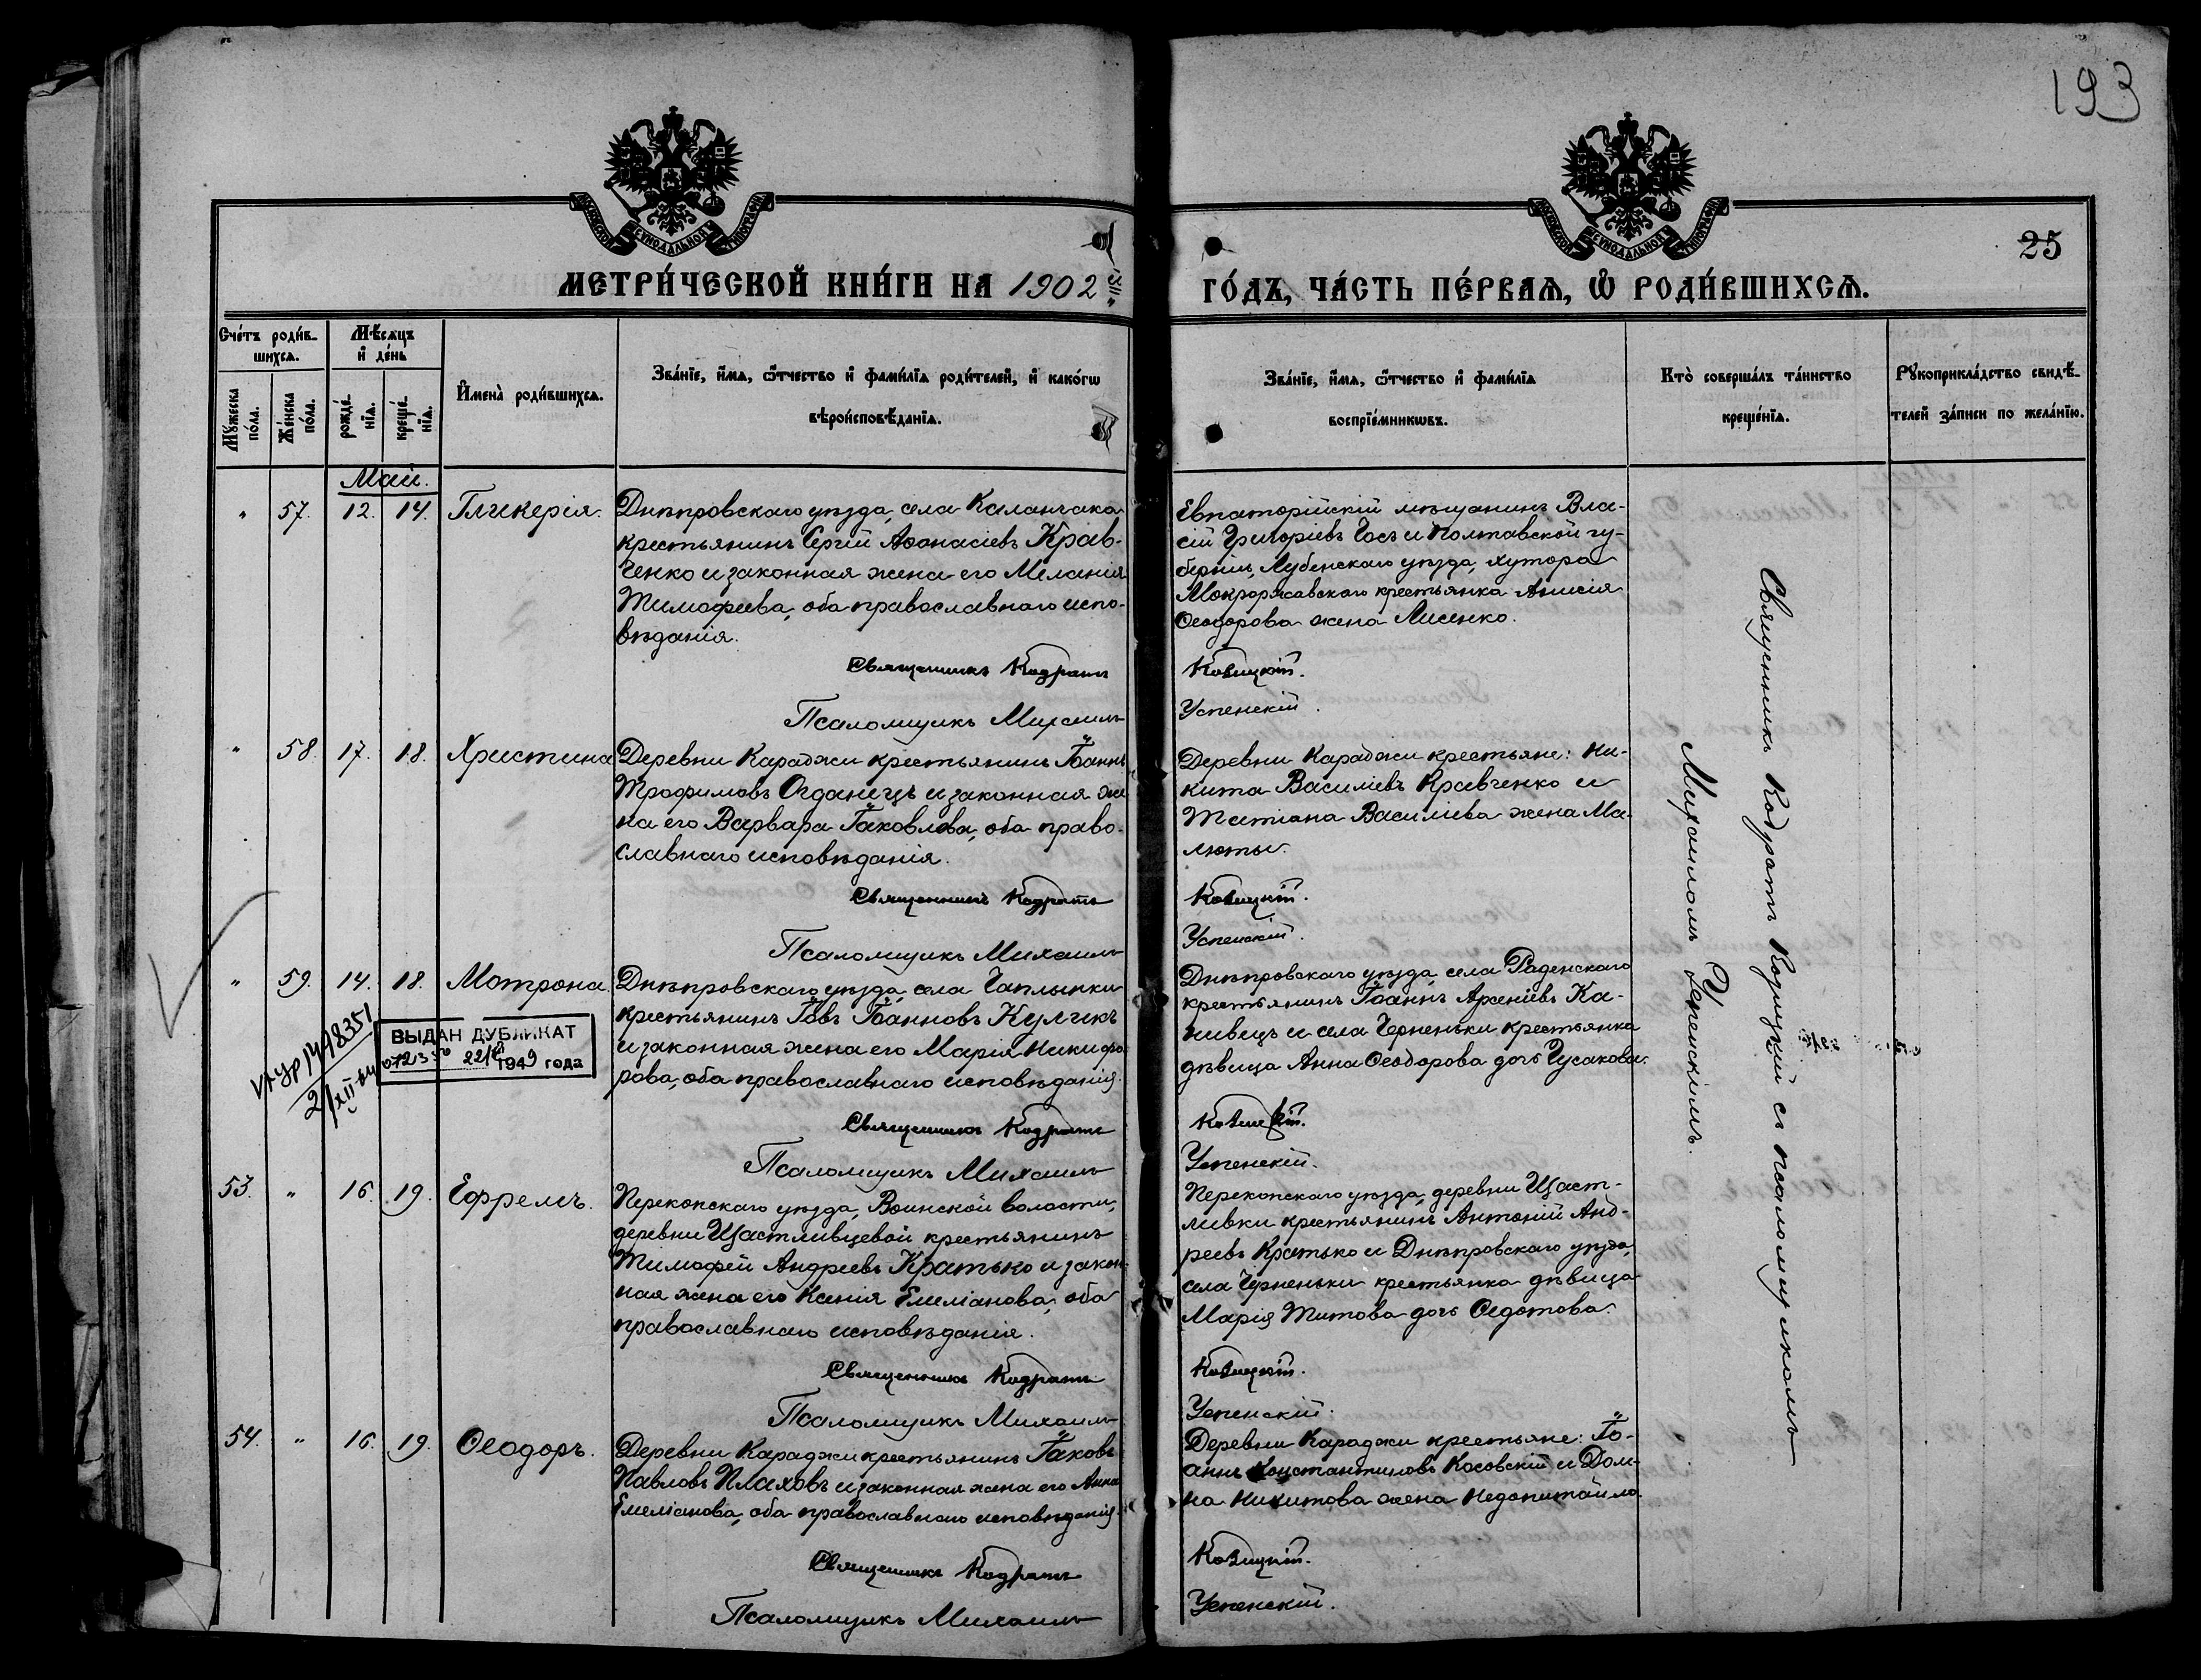 193
МОСКОВСКОЙ СѴНОДАЛЬНОЙ ТИПОГРАФІИ
МОСКОВСКОЙ СѴНОДАЛЬНОЙ ТИПОГРАФІИ
25
МЕТРИ́ЧЕСКОЙ КНИ́ГИ НА 1902
ГО́ДЪ, ЧА́СТЬ ПЕ́РВАѦ, Ѡ҆ РОДИ́ВШИХСѦ.
Сче́тъ роди́в-
шихсѧ.
Мꙋ́жеска
по́ла.
Же́нска
по́ла.
Мѣ́сѧцъ
и҆ де́нь
рожде́-
нїѧ.
креще́-
нїѧ.
И҆мена̀ роди́вшихсѧ.
Зва́нїе, и҆́мѧ, ѻ҆́тчество и҆ фами́лїѧ роди́телей, и҆ како́гѡ
вѣроисповѣ́данїѧ.
Зва́нїе, и҆́мѧ, ѻ҆́тчество и҆ фами́лїѧ
воспрїе́мникѡвъ.
Кто̀ соверша́лъ та́инство
креще́нїѧ.
Рꙋкоприкла́дство свидѣ́-
телей за́писи по жела́нїю.
Май.
" 57. 12. 14. Гликерія.
Днѣпровскаго уѣзда, села Каланчака
крестьянинъ Сергій Аѳанасіевъ Крав-
ченко и законная жена его Меланія
Тимофеева, оба православнаго испо-
вѣданія.
Священникъ Кодратъ
Псаломщикъ Михаилъ
Евпаторійскій мѣщанинъ Вла-
сій Григоріевъ Госъ и Полтавской гу-
берніи, Лубенскаго уѣзда, хутора
крестьянка Анисія
Ѳеодорова жена Лисенко.
Успенскій.
" 58. 17. 18. Христина
Деревни Караджи крестьянинъ Іоаннъ
Трофимовъ Огданецъ и законная же
на его Варвара Іаковлева, оба право-
славнаго исповѣданія.
Священникъ Кодратъ
Псаломщикъ Михаилъ
Деревни Караджи крестьяне: Ни-
кита Василіевъ Кравченко и
Татіана Василіева жена Ма-
люты.
Успенскій.
" 59. 14. 18. Мотрона.
Днѣпровскаго уѣзда, села Чаплынки
крестьянинъ Іовъ Іоанновъ Куличъ
и законная жена его Марія Никифо
рова, оба православнаго исповѣданія.
Священникъ Кодратъ
Псаломщикъ Михаилъ
ВЫДАН ДУБЛИКАТ
1949 года
Днѣпровскаго уѣзда, села Раденскаго
крестьянинъ Іоаннъ Арсеніевъ Ка-
нивецъ и села Черненьки крестьянка
дѣвица Анна Ѳеодорова дочь Гусакова.
Успенскій.
53. " 16. 19. Ефремъ.
Перекопскаго уѣзда, Воинской волости,
деревни Щастливцевой крестьянинъ
Тимофей Андреевъ Кратько и закон-
ная жена его Ксенія Емеліанова, оба
православнаго исповѣданія.
Священникъ Кодратъ
Псаломщикъ Михаилъ
Перекопскаго уѣзда, деревни Щаст-
ливки крестьянинъ Антоній Анд-
реевъ Кратько и Днѣпровскаго уѣзда,
села Черненьки крестьянка дѣвица
Марія Титова дочь Ѳедотова.
Успенскій.
54. " 16. 19. Ѳеодоръ.
Деревни Караджи крестьянинъ Іаковъ
Павловъ Плаховъ и законная жена его Анна
Емеліанова, оба православнаго исповѣданія.
Священникъ Кодратъ
Псаломщикъ Михаилъ
Деревни Караджи крестьяне: Іо-
аннъ Константиновъ Косовскій и Дом-
на Никитова жена Недопитайло.
Успенскій.
Священникъ Кодратъ съ псаломщикомъ
Михаиломъ Успенскимъ.